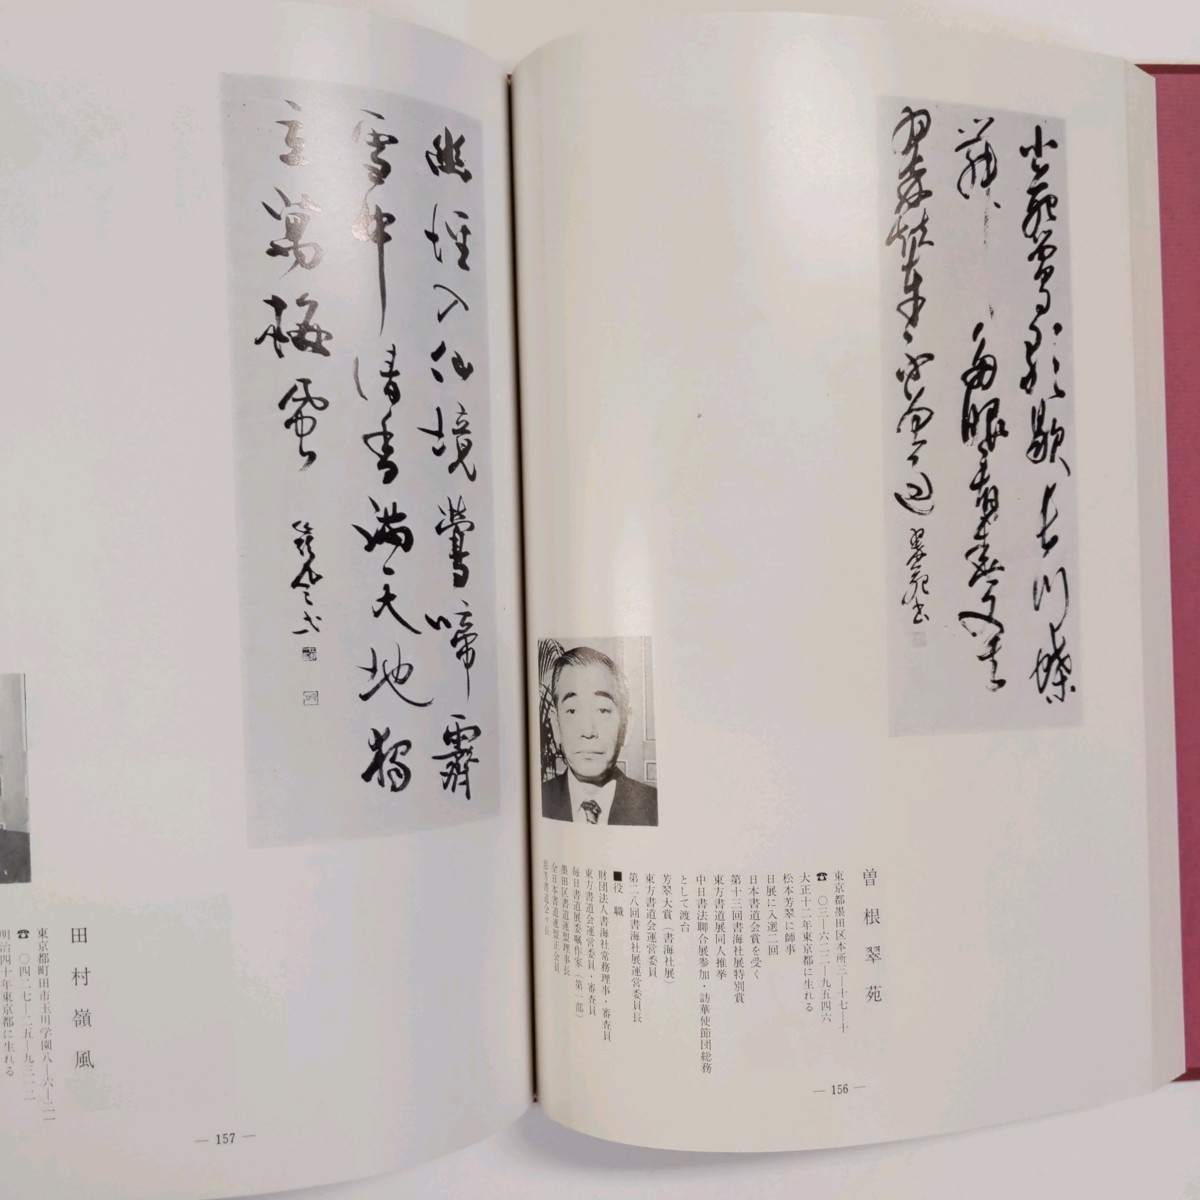 小苑鶯歌歇長門蝶
舞多眼看春又去
翠輦不曾過 翠苑書
曽根翠苑
東京都墨田区本所三―一七―十
☎〇三―六二二―九五四六
大正十二年東京都に生れる
松本芳翠に師事
日展に入選二回
日本書道会賞を受く
第十三回書海社展特別賞
東方書道展同人推挙
中日書法聯合展参加・訪華使節団総務
として渡台
芳翠大賞(書海社展)
東方書道会運営委員
第二八回書海社展運営委員長
■役職
財団法人書海社常務理事・審査員
東方書道会運営委員・審査員
毎日書道展委嘱作家(第一部)
墨田区書道連盟理事長
全日本書道連盟正会員
― 156 ―
幽徑入仙境鶯啼霽
雪中清香満天地獨
立萬梅
田村嶺風
東京都町田市玉川学園八―六―二一
☎〇四二七―二五―九三一二
明治四十年東京都に生れる
― 157 ―